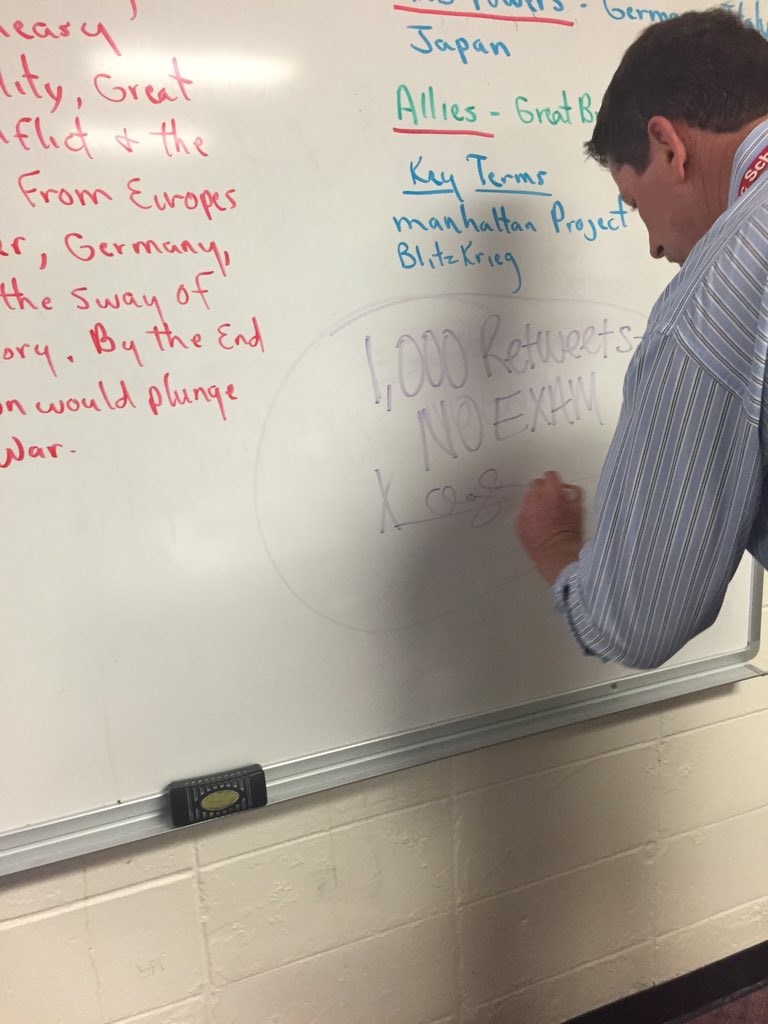 easy
lity, Great
nflict & the
From Europes
er, Germany,
the sway of
ory. By the End
on would plunge
War.
Powers - Germa
Japan
Allies - Great Br
Key Terms
manhattan Project
BlitzKrieg
1,000 Retweets-
NO EXAM
X
Sch